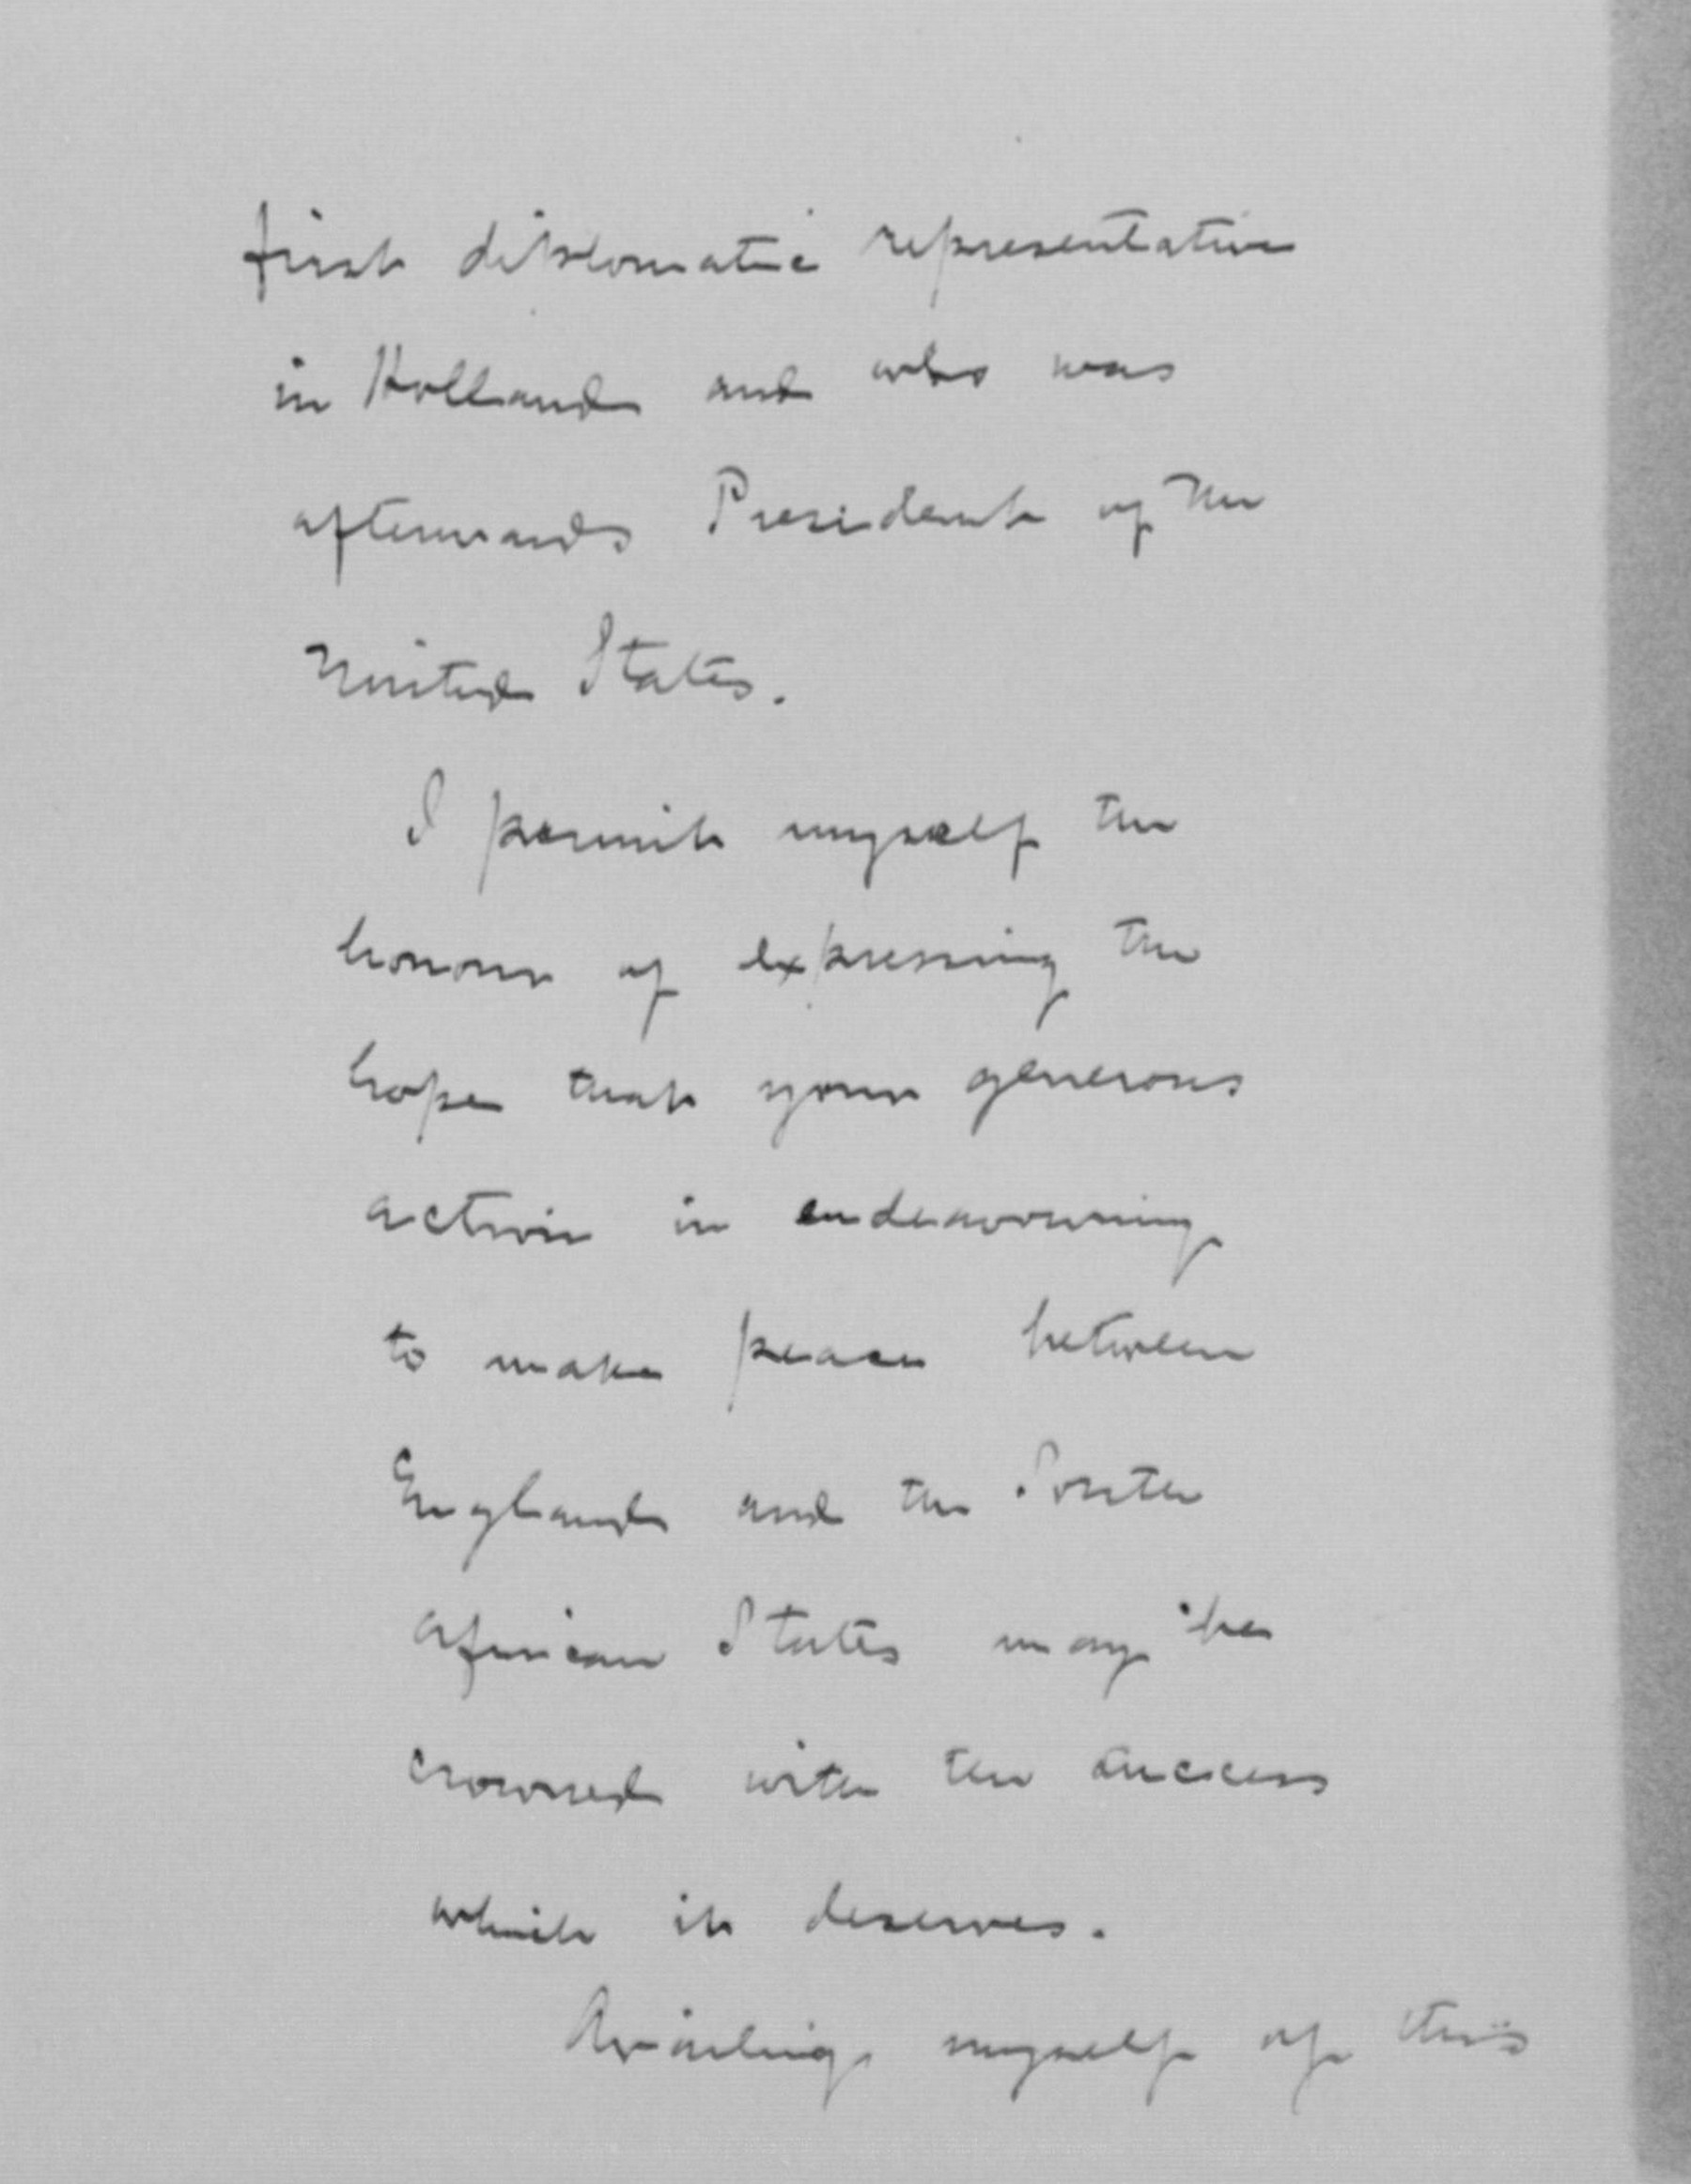 first diplomatic representative
in Holland and who was
afterwards President of the
United States.
I permit myself the
honour of expressing the
hope that your generous
action in endeavouring
to make peace between
England and the South
African States may be
crowned with the success
which it deserves.
Availing myself of this